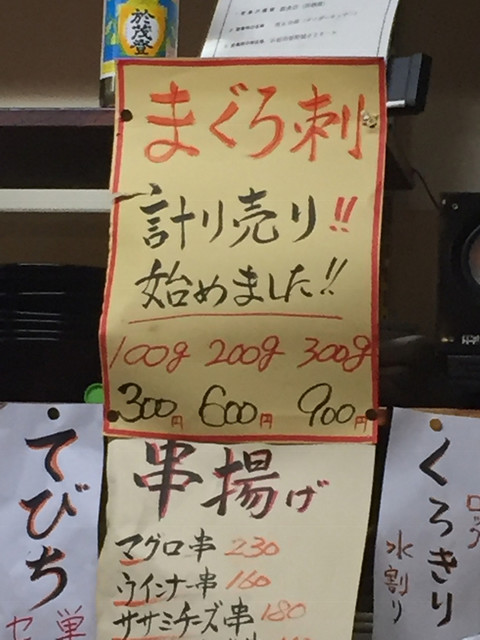 於茂登
まぐろ刺
計り売り!!
始めました!!
100g 200g 300g
300円 600円 900円
串揚げ
マグロ串 230
ウインナー串 160
ササミチーズ串 180
てびち
単
セ
くろきり
ロック
水割り